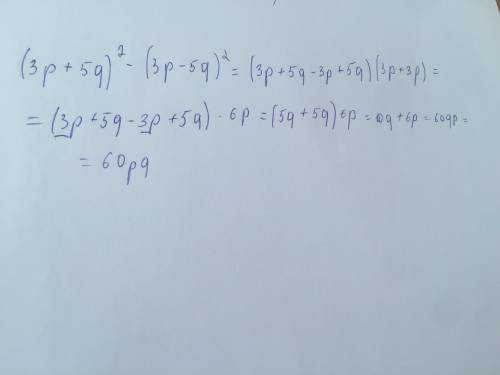 (3p + 5q)² - (3p - 5q)² = (3p + 5q - 3p + 5q)(3p + 3p) =
= (3p + 5q - 3p + 5q) · 6p = (5q + 5q) 6p = 10q + 6p = 60qp =
= 60pq